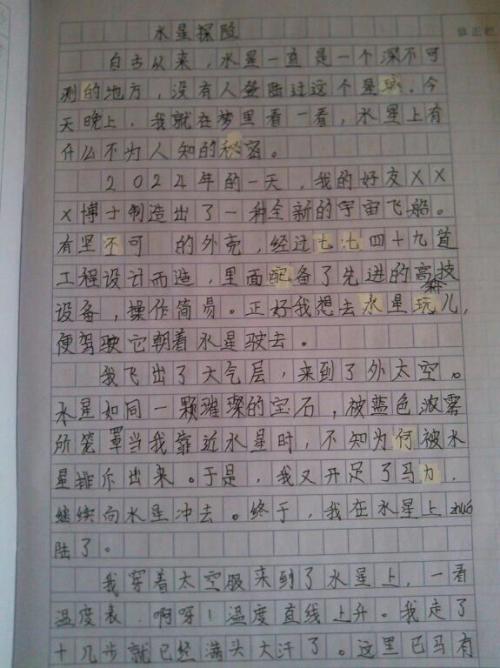 水星探险
自古以来，水星一直是一个深不可
测的地方，没有人登陆过这个星球。今
天晚上，我就在梦里看一看，水星上有
什么不为人知的秘密。
2024年的一天，我的好友XX
X博士制造出了一种全新的宇宙飞船。
有坚不可 的外壳，经过七七四十九道
工程设计而造，里面配备了先进的高科技
设备，操作简易。正好我想去水星玩儿，
便驾驶它朝着水星驶去。
我飞出了大气层，来到了外太空。
水星如同一颗璀璨的宝石，被蓝色浓雾
所笼罩当我靠近水星时，不知为何被水
星排斥出来。于是，我又开足了马力，
继续向水星冲去。终于，我在水星上
陆了。
我穿着太空服来到了水星上，一看
温度表，啊呀！温度直线上升。我走了
十几步就已经满头大汗了。这里已马有